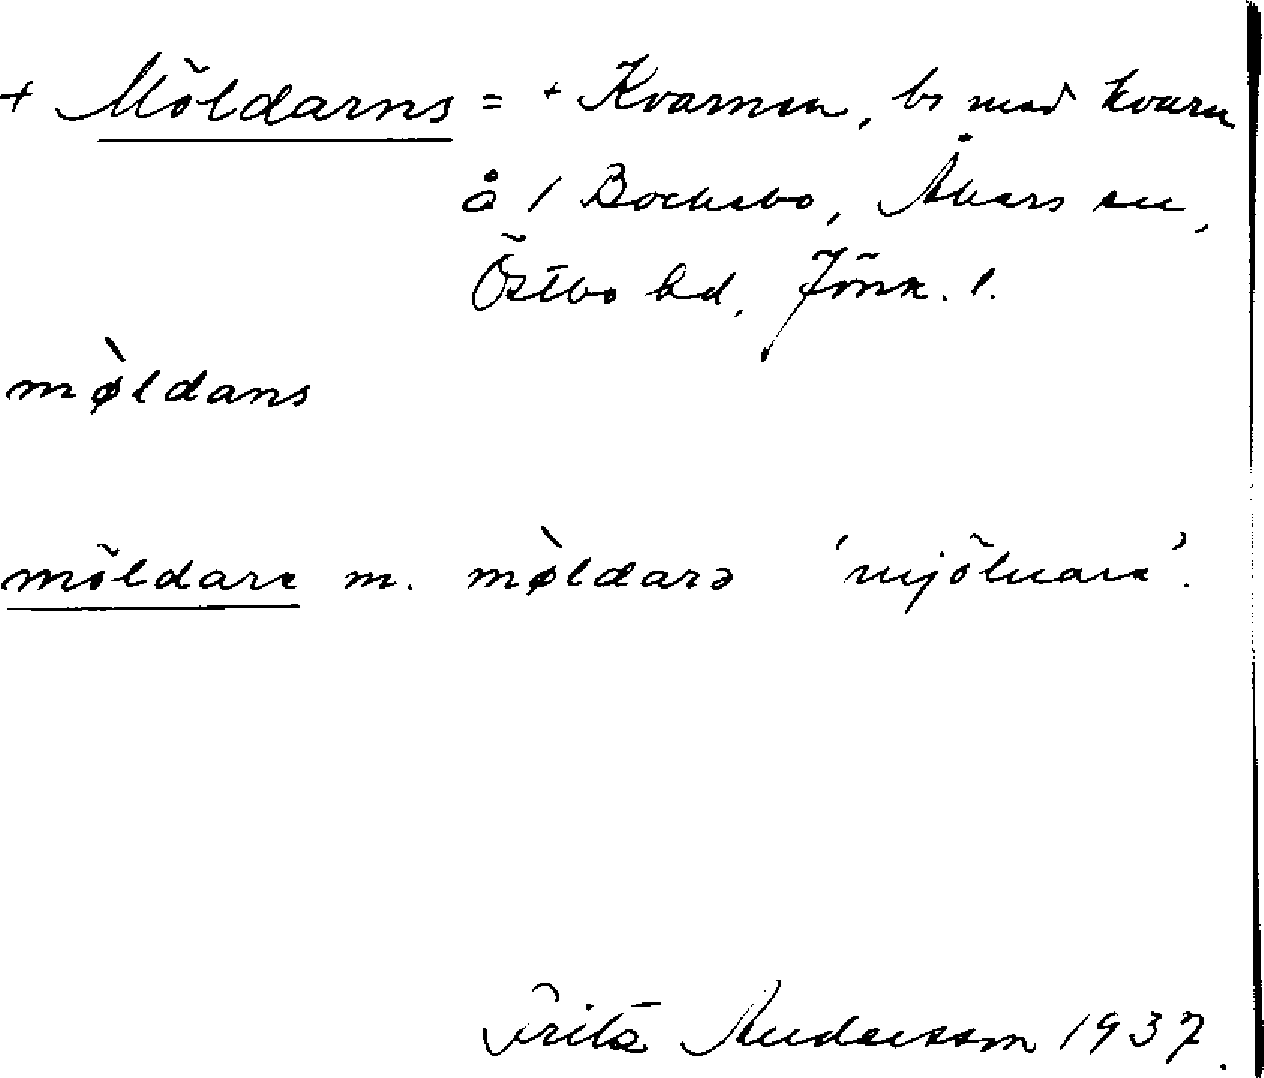 + Möldarns = + Kvarnen, bs med kvarn
å 1 Bocksbo, Åkers sn,
Östbo hd, Jönk. l.
mø̀ldans
möldare m. mø̀ldarə 'mjölnare'.
Fritz Andersson 1937.